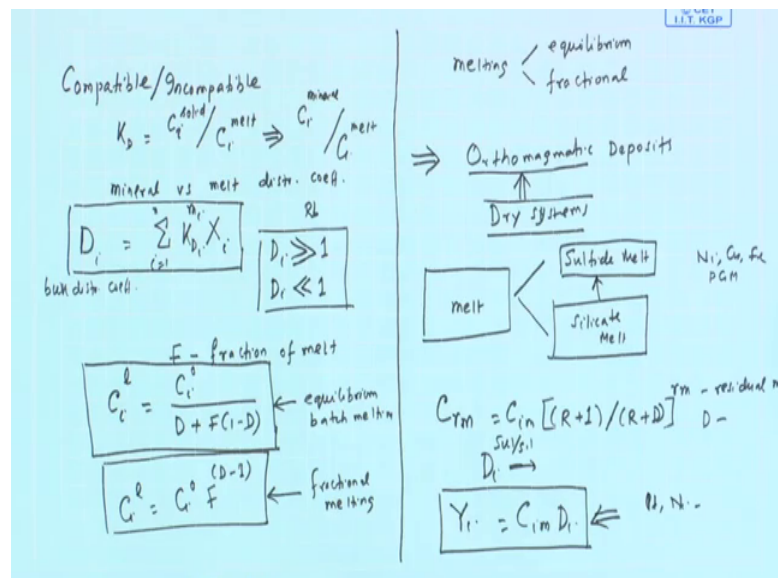 CET
I.I.T. KGP
Compatible/Incompatible
K_D = C_i^solid / C_i^melt ⇒ C_i^mineral / C_i^melt
mineral vs melt distr. coeff.
D_i = Σ K_Di X_i
bulk distr. coeff.
Rb
D_i ≫ 1
D_i ≪ 1
F - fraction of melt
C_i^l = C_i^0 / D + F(1-D) ← equilibrium
batch melting
C_i^l = C_i^0 F^(D-1) ← fractional
melting
melting < equilibrium
fractional
⇒ Orthomagmatic Deposits
Dry systems
melt < Sulfide Melt
Silicate
Melt
Ni, Cu, Fe
PGM
C_rm = C_in [(R+1)/(R+D)] rm - residual m
D -
D_i^sul/sil →
Y_i = C_im D_i ⇐